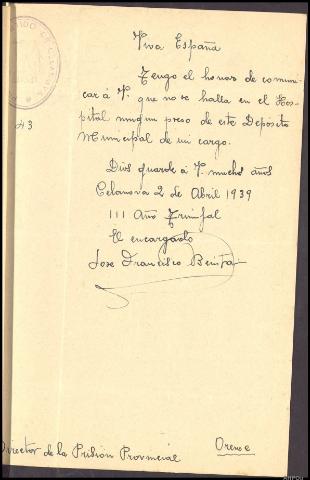 Viva España
Tengo el honor de comuni-
car á V. que no se halla en el Hos-
pital ningun preso de este Depósito
Municipal de mi cargo.
Dios guarde á V. muchos años
Celanova 2 de Abril 1939
III Año Triunfal
El encargado
Jose Francisco
43
Director de la Prisión Provincial
Orense